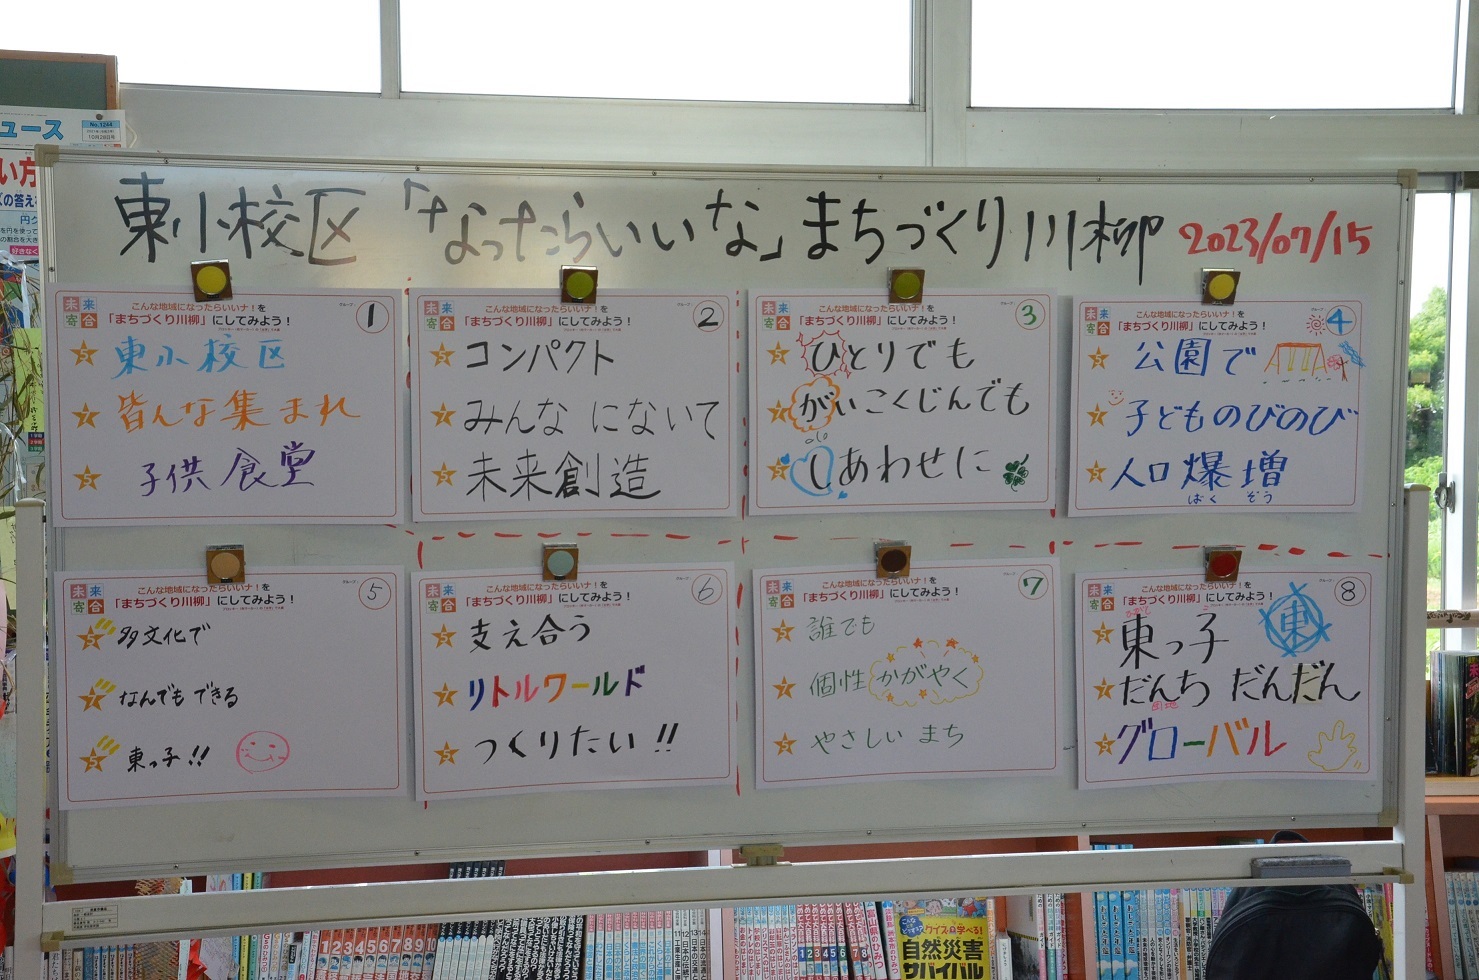 東小校区「なったらいいな」まちづくり川柳 2023/07/15
未来寄合
こんな地域になったらいいナ！を
「まちづくり川柳」にしてみよう！
グループ：
1
5 東小校区
7 皆んな集まれ
5 子供食堂
未来寄合
こんな地域になったらいいナ！を
「まちづくり川柳」にしてみよう！
グループ：
2
5 コンパクト
7 みんな にないて
5 未来創造
未来寄合
こんな地域になったらいいナ！を
「まちづくり川柳」にしてみよう！
グループ：
3
5 ひとりでも
7 がいこくじんでも
5 しあわせに
未来寄合
こんな地域になったらいいナ！を
「まちづくり川柳」にしてみよう！
グループ：
4
5 公園で
7 子どものびのび
5 人口爆増
ばく ぞう
未来寄合
こんな地域になったらいいナ！を
「まちづくり川柳」にしてみよう！
グループ：
5
5 多文化で
7 なんでもできる
5 東っ子!!
未来寄合
こんな地域になったらいいナ！を
「まちづくり川柳」にしてみよう！
グループ：
6
5 支え合う
7 リトルワールド
5 つくりたい!!
未来寄合
こんな地域になったらいいナ！を
「まちづくり川柳」にしてみよう！
グループ：
7
5 誰でも
7 個性かがやく
5 やさしい まち
未来寄合
こんな地域になったらいいナ！を
「まちづくり川柳」にしてみよう！
グループ：
8
5 東っ子
東
7 だんち だんだん
団地
5 グローバル
ュース
No.1244
10月28日号
い方
の答え
1 2 3 4 5 6 7 8 9 10
クイズで学べる!
自然災害
サバイバル